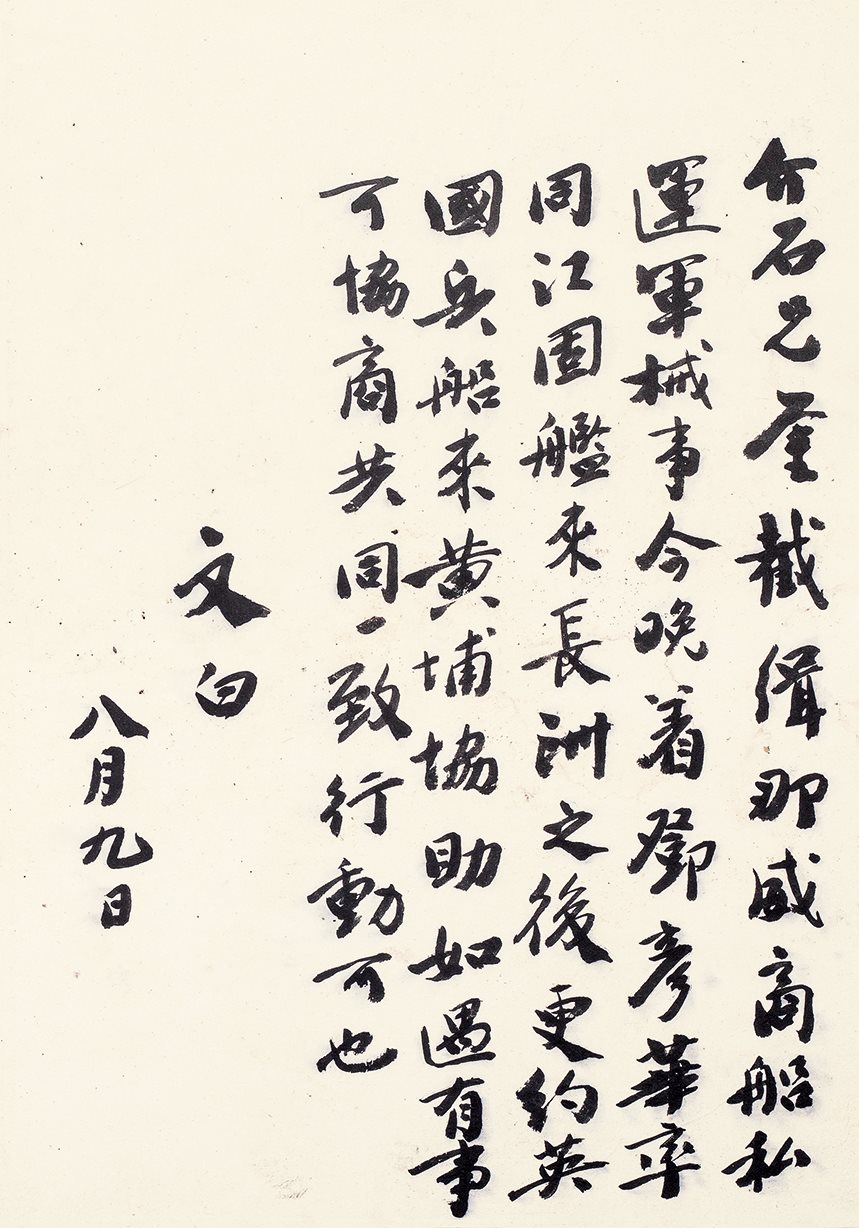 介石兄鑒截緝那威商船私
運軍械事今晚着鄧彥華率
同江固艦來長洲之後更約英
國兵船來黃埔協助如遇有事
可協商共同一致行動可也
文白
八月九日